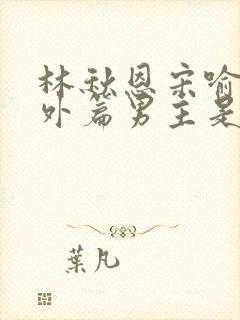 林秋恩宋喻
外篇男主是
葉凡